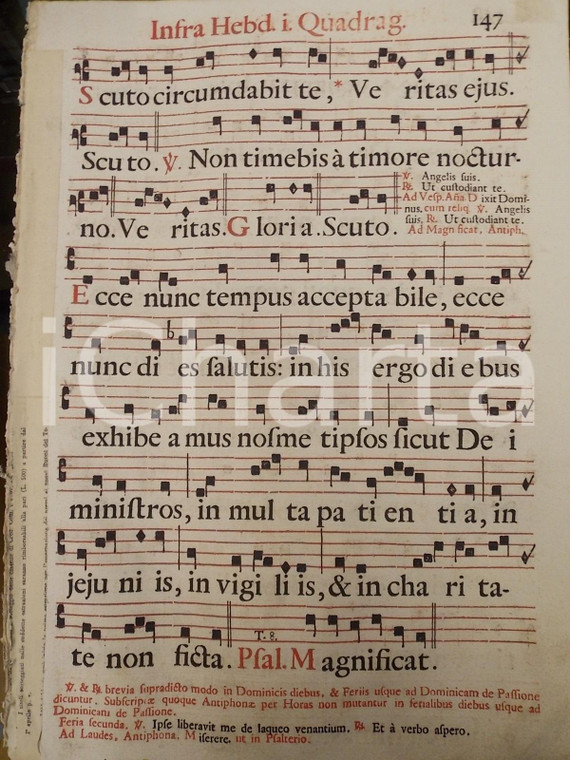 Infra Hebd. i. Quadrag. 147
Scuto circumdabit te,* Ve ritas ejus.
Scuto. ℣. Non timebis à timore noctur-
no. Ve ritas. Gloria. Scuto.
℣. Angelis suis.
℟. Ut custodiant te.
Ad Vesp. Aña D ixit Domi-
nus, cum reliq. ℣. Angelis
suis. ℟. Ut custodiant te.
Ad Magnificat. Antiph.
Ecce nunc tempus accepta bile, ecce
nunc di es ſalutis: in his ergo di e bus
exhibe a mus noſme tipſos ſicut De i
miniſtros, in mul ta pa ti en ti a, in
jeju ni is, in vigi li is, & in cha ri ta-
te non ficta. Pſal. Magnificat.
T. 8.
℣. & ℟. brevia ſupradicto modo in Dominicis diebus, & Feriis uſque ad Dominicam de Paſſione
dicuntur. Subſcriptæ quoque Antiphonæ per Horas non mutantur in ferialibus diebus uſque ad
Dominicam de Paſſione.
Feria ſecunda. ℣. Ipſe liberavit me de laqueo venantium. ℟. Et à verbo aſpero.
Ad Laudes, Antiphona. M iſerere. ut in Pſalterio.
iCharta